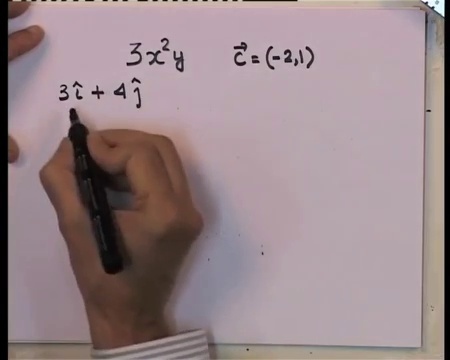 3x²y c⃗ = (-2,1)
3î + 4ĵ